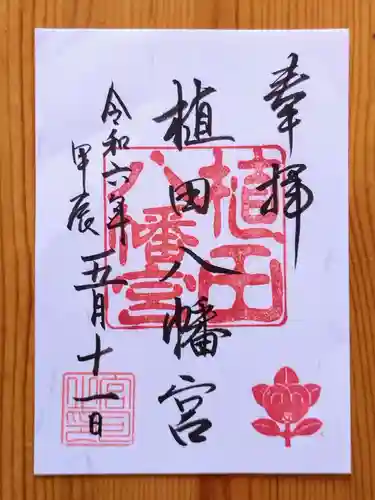 奉拝
植田八幡宮
令和六年
甲辰
五月十一日
植田
八幡宮
宮司
之印